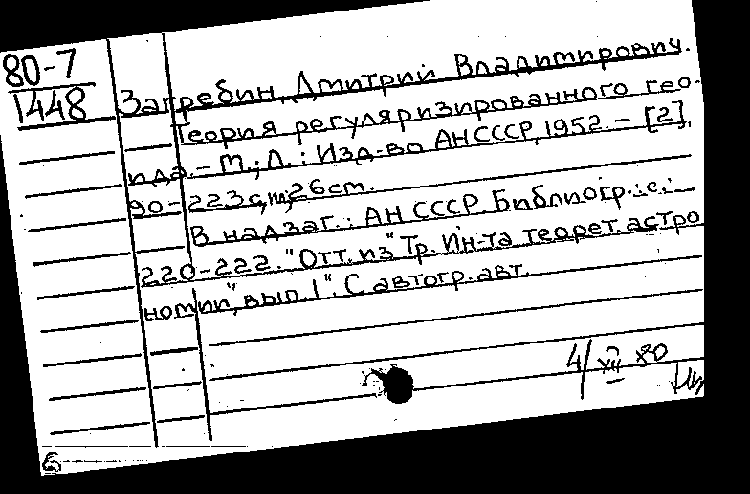 80-7
1448
Загребин, Дмитрий Владимирович.
Теория регуляризированного гео-
ида. - М.; Л. : Изд-во АН СССР, 1952. - [2],
90-223 с, ил; 26 см.
В надзаг.: АН СССР. Библиогр.: с.:
220-222. "Отт. из "Тр. Ин-та теорет. астро
номии", вып. 1". С автогр. авт.
4/XII 80
6